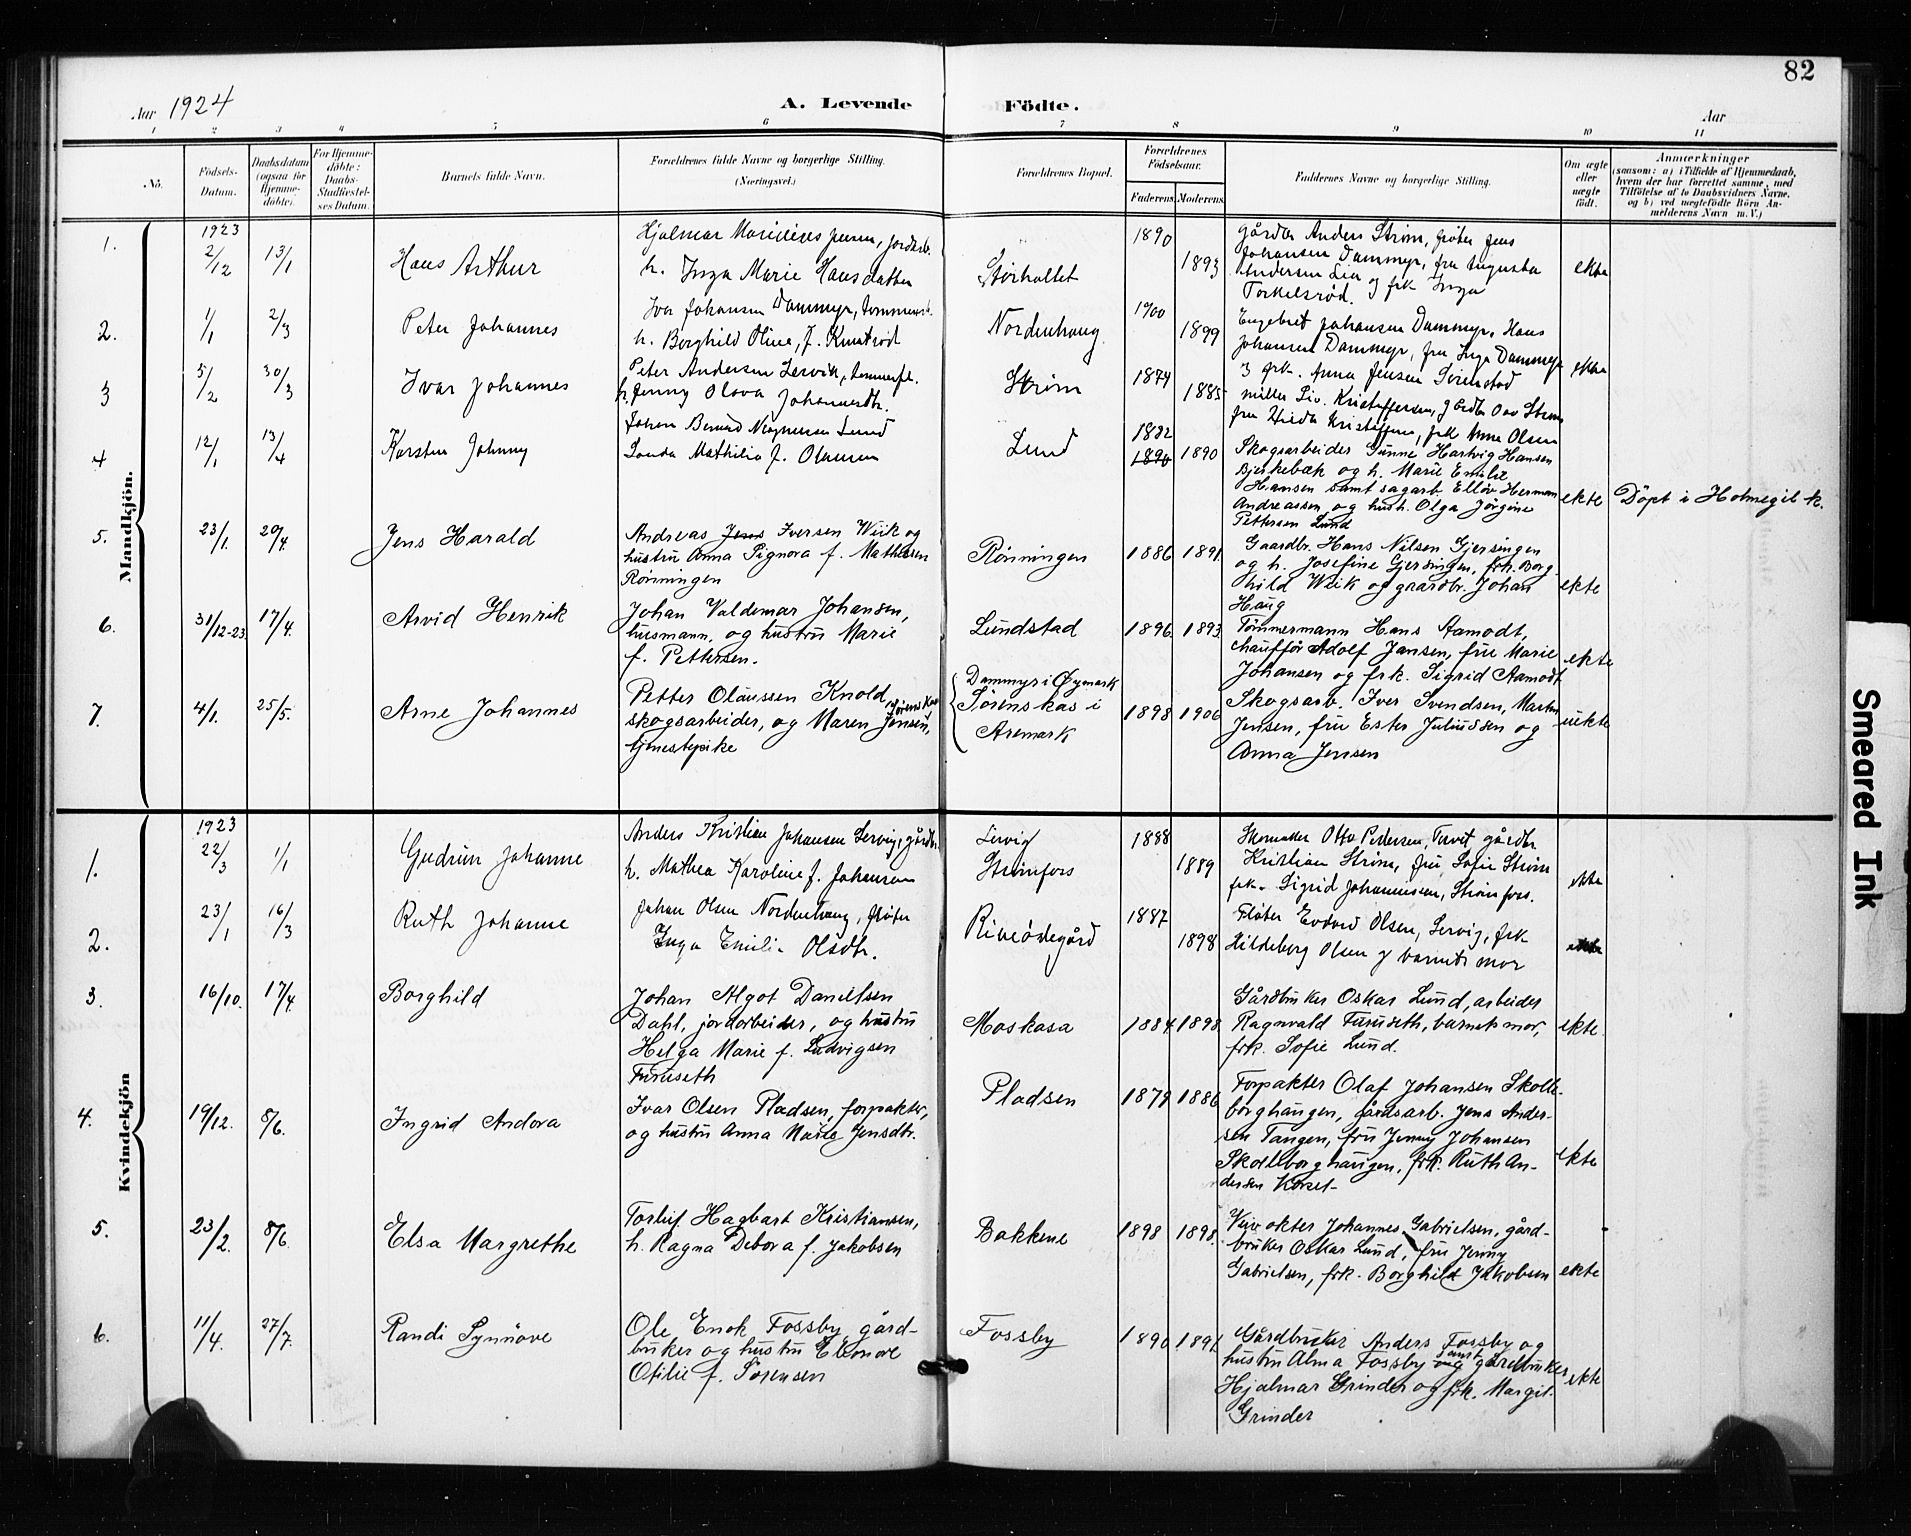 82
Aar 1924
A. Levende Födte.
Aar
1 2 3 4 5 6 7 8 9 10 11
No.
Födsels-Datum.
Daabsdatum (ogsaa for Hjemmedöbte).
For Hjemmedöbte: Daabs-Stadfæstelses Datum.
Barnets fulde Navn.
Forældrenes fulde Navne og borgerlige Stilling. (Næringsvei.)
Forældrenes Bopæl.
Forældrenes Födselsaar.
Faderens Moderens
Faddernes Navne og borgerlige Stilling.
Om ægte eller uægte födt.
Anmærkninger
(saasom: a) i Tilfælde af Hjemmedaab, hvem der har forrettet samme, med Tilföielse af to Daabsvidners Navne, og b) ved uægtefödte Börn Anmelderens Navn m. V.)
Mandkjön.
1. 1923 2/12 13/1 Hans Arthur
Hjalmar
h. Inga Marie Hansdatter
Størhollet
1890 1893
Gårdbr Anders Strøm, fløter Jens
Johansen Dammyr, fru Augusta
Andersen Lia og frk Inga
Torkelsrød.
ekte
2. 1/1 2/3 Peter Johannes
Ivar Johansen Dammyr,
h. Borghild Oline, f. Knatrød
Nordenhaug.
1900 1899
Engebret Johansen Dammyr, Hans
Johansen Dammyr, fru Inga Dammyr
og frk. Anna Jensen Sørenstad
ekte
3 5/2 30/3 Ivar Johannes
Peter Andersen Lervik,
h. Jenny Olava Johannesdtr.
Strøm
1874 1885
Kristoffersen, Gårdbr Olav Strøm
fru Hilda Kristoffersen, frk Anne Olsen
4 12/1 13/4 Karsten Johnny
Johan Bernard Magnussen Lund
Louda Mathilia f. Olaussen
Lund
1882 1890 1890
Skogsarbeider Gunne Hartvig Hansen
Bjerkebæk og h. Marie Emilie
Hansen samt sagarb. Elløv Herman
Andreassen og husb. Olga Jørgine
Pettersen Lund
ekte
Döpt i Holmegil k.
5. 23/1. 20/4. Jens Harald
Andreas Jens Iversen Wiik og
hustru Anna Signora f. Mathisen
Rönningen
Rönningen
1886 1891
Gaardbr. Hans Nilsen Gjersingen
og h. Josefine Gjersingen, frk. Borg-
hild Wiik og graardbr. Johan
Haug
ekte
6. 31/12-23. 17/4. Arvid Henrik
Johan Valdemar Johansen,
husmann, og hustru Marie
f. Pettersen.
Lundstad
1896 1893
Tömmermann Hans Aamodt,
chauffør Adolf Jansen, frue Marie
Johansen og frk. Sigrid Aamodt
ekte
7. 4/1. 25/5. Arne Johannes
Petter Olaussen Knold, Sørenskas
skogsarbeider, og Maren Jensen,
tjenestepike
Dammyr i Øymark
Sørenskas i
Aremark
1898 1906
Skogsarb. Iver Svendsen, Martin
Jensen, fru Ester Juliussen og
Anna Jensen
uekte
Kvindekjön
1. 1923 22/3 1/1 Gudrun Johanne
Anders Kristian Johansen Lervig, gårdbr.
h. Mathea Karoline f. Johansen
Lervig
Strømfors
1888 1889
Skomaker Otto Pedersen, Tarvet gårdbr
Kristian Strøm, fru Sofie Strøm
frk. Sigrid Johannessen, Strømfoss.
ekte
2. 23/1 16/3 Ruth Johanne
Johan Olsen Nordenhaug, fløter
Inga Emilie Olsdtr.
Riveødegård
1887 1898
Fløter Edvard Olsen, Lervig, frk
Hildeborg Olsen og barnets mor
3. 16/10. 17/4. Borghild
Johan Algot Danielsen
Dahl, jordarbeider, og hustru
Helga Marie f. Ludvigsen
Furuseth
Moskasa
1884 1898
Gårdbruker Oskar Lund, arbeider
Ragnvald Furuseth, barnets mor,
frk. Sofie Lund.
ekte.
4. 19/12. 8/6. Ingrid Andora
Ivar Olsen Pladsen, forpakter,
og hustru Anna Marie Jensdtr.
Pladsen
1879 1886
Forpakter Olaf Johansen Skolle-
borghaugen, gårdsarb. Jens Ander-
sen Tangen, fru Jenny Johansen
Skolleborghaugen, frk. Ruth An-
dersen Korset-
ekte
5. 23/2. 8/6. Elsa Margrethe
Torleif Hagbart Kristiansen,
h. Ragna Debora f. Jakobsen
Bakkene
1898 1898.
Johannes Gabrielsen, gård-
bruker Oskar Lund, fru Jenny
Gabrielsen, frk. Borghild Jakobsen
ekte
6. 11/4. 27/7. Randi Synnöve
Ole Enok Fossby, gård-
bruker og hustru Eleonore
Otilie f. Sørensen
Fossby
1890 1891
Gårdbruker Anders Fossby og
hustru Alma Fossby samt og gårdbruker
Hjalmar Grinder og frk. Margit
Grinder
ekte
Smeared Ink